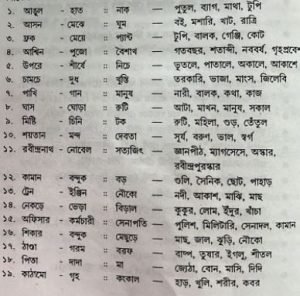 ১. আঙুল – হাত :: নাক – পুতুল, ব্যাগ, মাথা, টুপি
২. আসন – মেঝে :: ঘুম – বই, মশারি, খাট, রাত্রি
৩. ফ্রক – মেয়ে :: প্যান্ট – টুপি, বালক, গেঞ্জি, কোট
৪. আশ্বিন – পুজো :: বৈশাখ – গতবছর, শতাব্দী, নববর্ষ, গৃহপ্রবেশ
৫. উপরে – শীর্ষে :: নিচে – ভূতলে, পাতালে, অকালে, আকাশে
৬. চামচে – দুধ :: খুন্তি – তরকারি, ভাজা, মাংস, জিলেবি
৭. পাখি – গান :: মানুষ – নারী, বালক, কথা, কাজ
৮. ঘাস – ঘোড়া :: রুটি – আটা, মাখন, মানুষ, সকাল
৯. মিষ্টি – চিনি :: টক – রুটি, মহিলা, গুড়, তেঁতুল
১০. শয়তান – মন্দ :: দেবতা – সূর্য, বরুণ, ভাল, স্বর্গ
১১. রবীন্দ্রনাথ – নোবেল :: সত্যজিৎ – জ্ঞানপীঠ, ম্যাগসেসে, অস্কার,
রবীন্দ্রপুরস্কার
১২. কামান – বন্দুক :: বড় – গুলি, সৈনিক, ছোট, পাহাড়
১৩. ট্রেন – ইঞ্জিন :: নৌকো – নদী, আকাশ, মাঝি, মাছ
১৪. নেকড়ে – ভেড়া :: বিড়াল – কুকুর, লোম, ইঁদুর, খাঁচা
১৫. অফিসার – কর্মচারী :: সেনাপতি – পুলিশ, মিলিটারি, সেনাদল, কামান
১৬. শিকার – বন্দুক :: মেছুড়ে – মাছ, জাল, ঝুড়ি, নৌকো
১৭. ঠাণ্ডা – গরম :: বরফ – বাষ্প, তুষার, ইগলু, শীতল
১৮. পিতা – দাদা :: মা – জ্যেঠা, বোন, মাসি, দিদি
১৯. কাঠামো – গৃহ :: কংকাল – হাড়, খুলি, শরীর, কবর